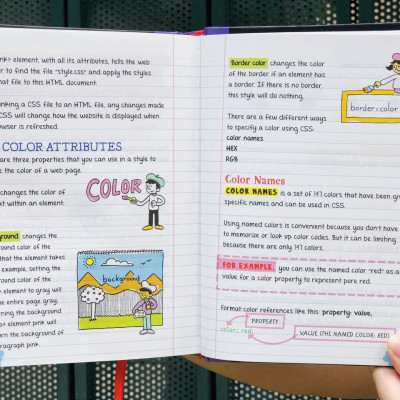 nk> element, with all its attributes, tells the web
er to find the file "style.css" and apply the styles
hat file to this HTML document.
inking a CSS file to an HTML file, any changes made
CSS will change how the website is displayed when
owser is refreshed.
COLOR ATTRIBUTES
are three properties that you can use in a style to
e the color of a web page.
changes the color of
ext within an element.
COLOR
ground changes the
ound color of the
that the element takes
example, setting the
ound color of the
> element to gray will
he entire page gray.
rning the background
> element pink will
urn the background of
aragraph pink.
background
Border color changes the color
of the border if an element has
a border. If there is no border,
this style will do nothing.
border:color
There are a few different ways
to specify a color using CSS:
color names
HEX
RGB
Color Names
COLOR NAMES is a set of 147 colors that have been giv
specific names and can be used in CSS.
Using named colors is convenient because you don't have
to memorize or look up color codes. But it can be limiting
because there are only 147 colors.
FOR EXAMPLE, you can use the named color "red" as a
value for a color property to represent pure red.
format color references like this: property: value;
PROPERTY
color: red;
VALUE (THE NAMED COLOR: RED)